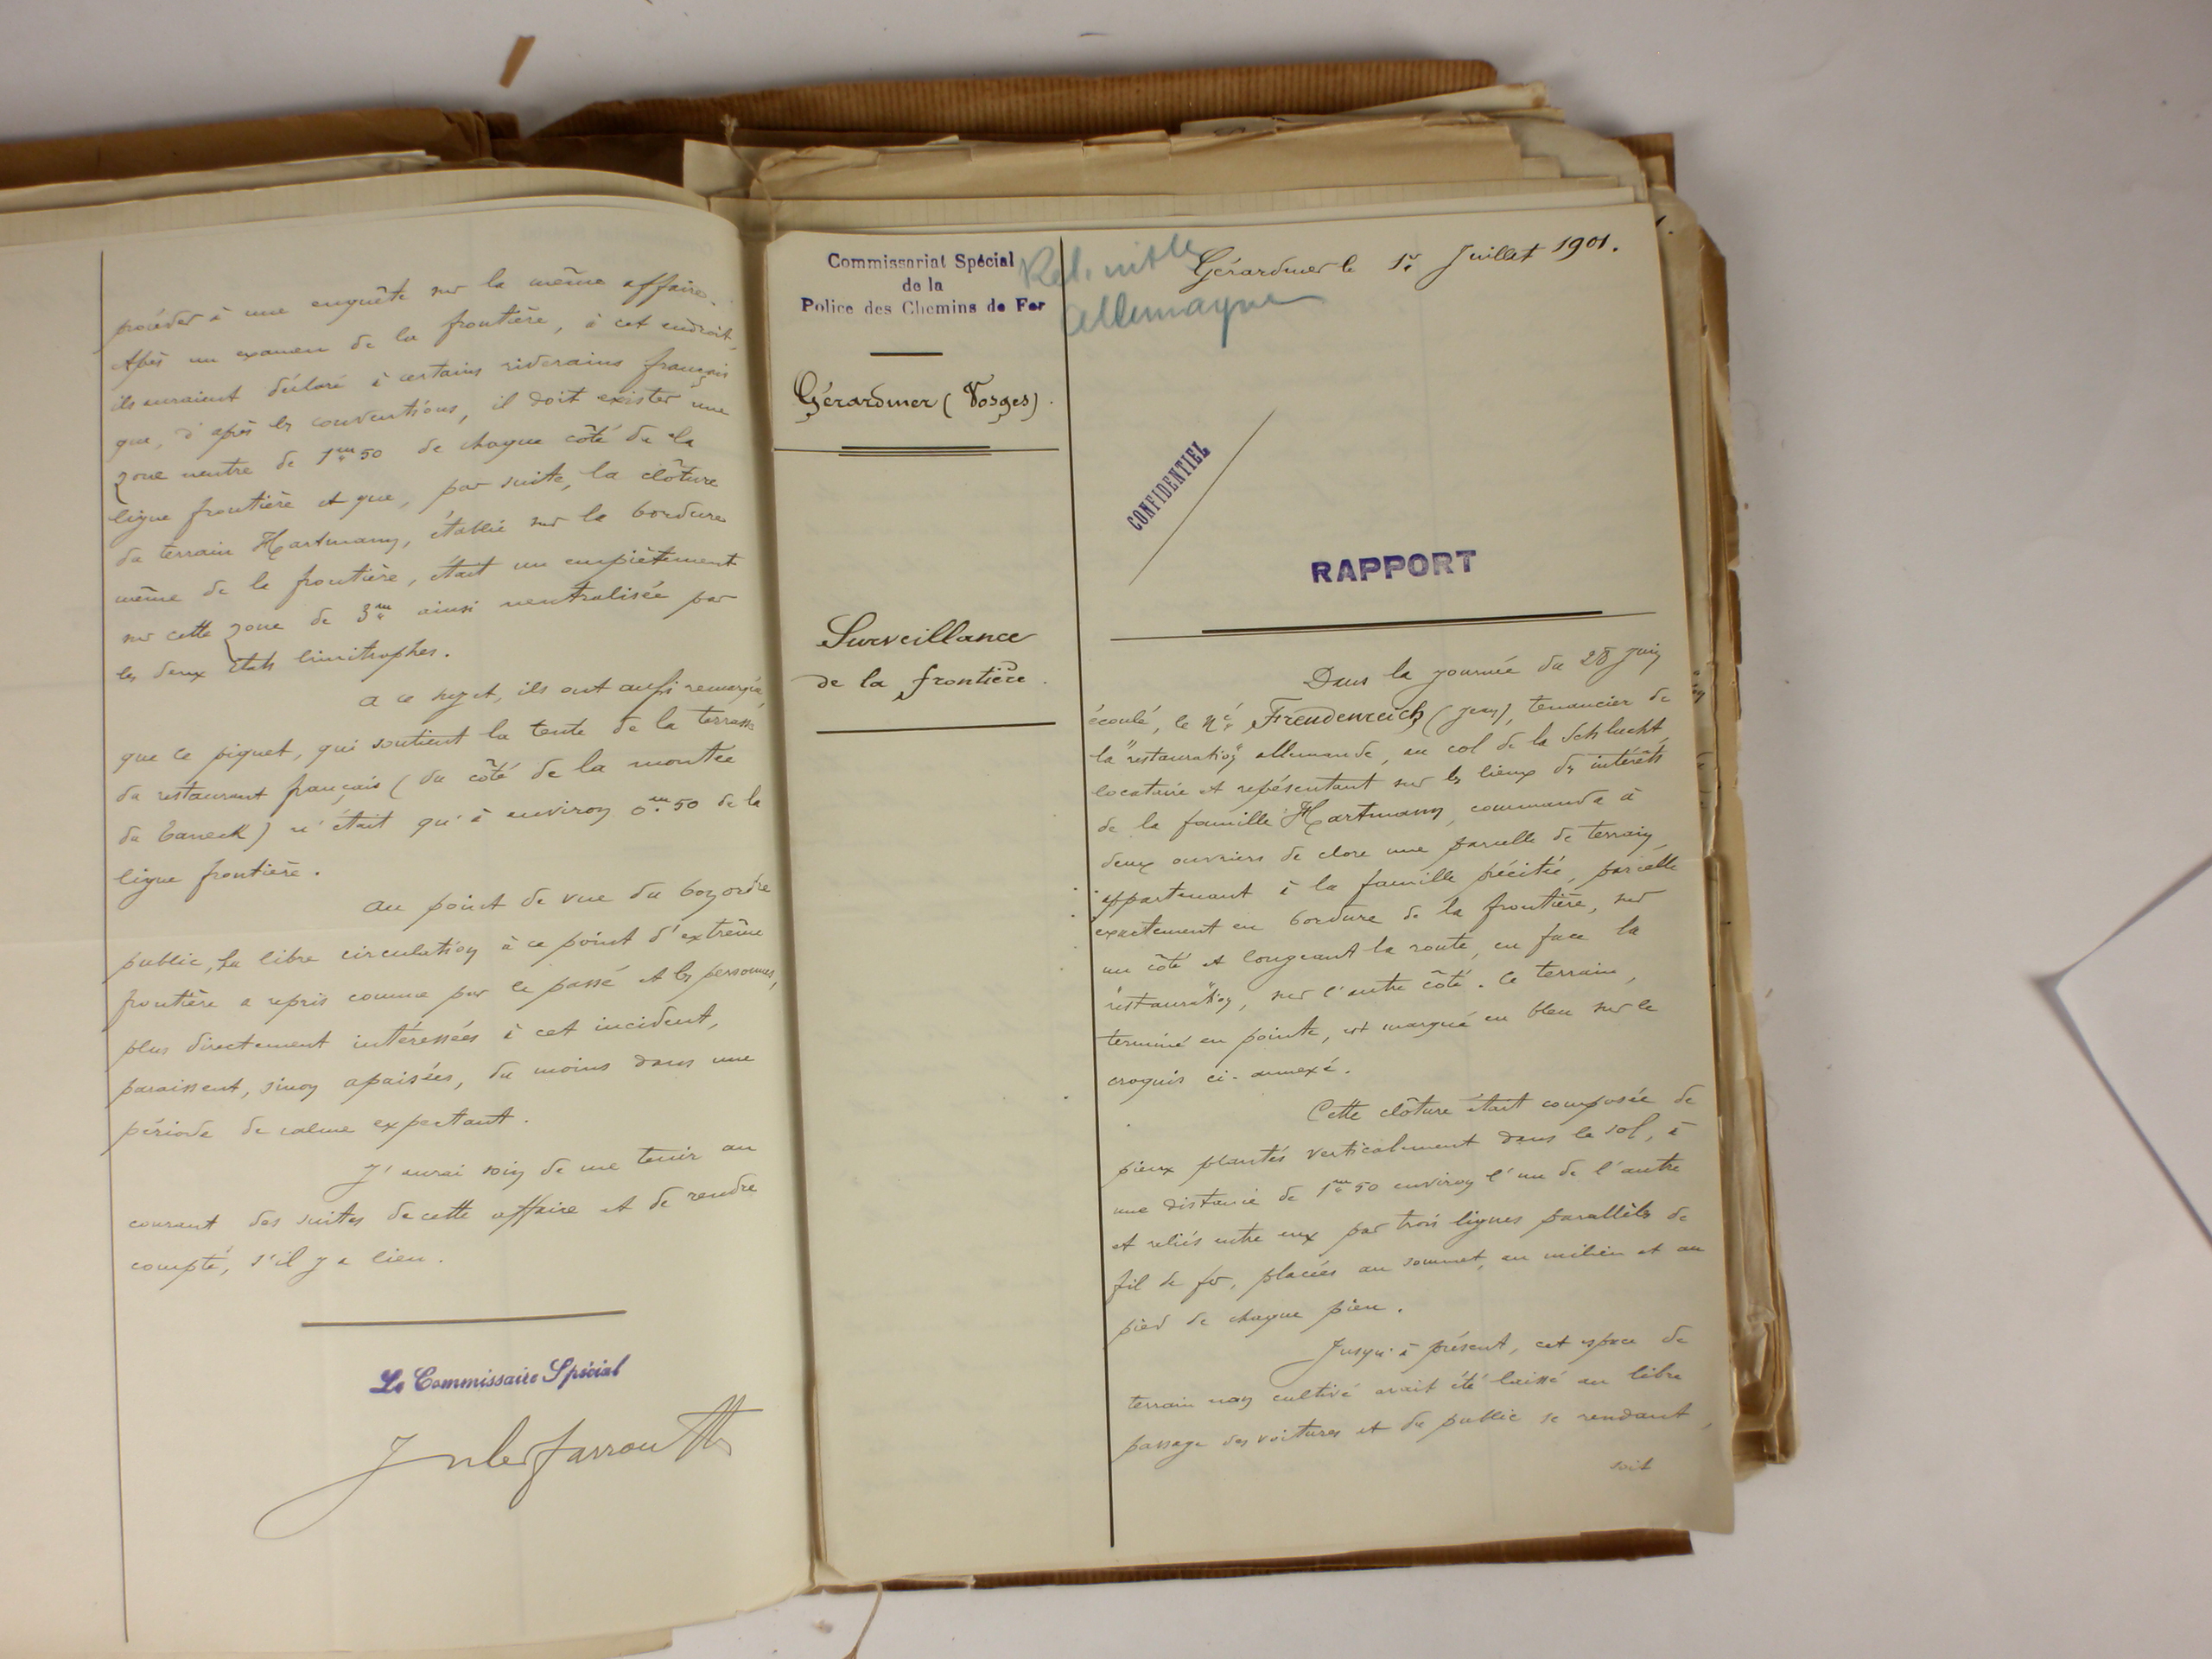 procéder à une enquête sur la même affaire.
Après un examen de la frontière, à cet endroit,
ils auraient déclaré à certains riverains français
que, d'après les conventions, il doit exister une
zone neutre de 1m50 de chaque côté de la
ligne frontière et que, par suite, la clôture
du terrain Hartmann, établie sur la bordure
même de la frontière, était un empiètement
sur cette zone de 3m ainsi neutralisée par
les deux états limitrophes.
A ce sujet, ils ont aussi remarqué
que le piquet, qui soutient la tente de la terrasse
du restaurant français (du côté de la montée
du Taneck) n'était qu'à environ 0m50 de la
ligne frontière.
Au point de vue du bon ordre
public, la libre circulation à ce point d'extrême
frontière a repris comme par le passé et les personnes,
plus directement intéressées à cet incident,
paraissent, sinon apaisées, du moins dans une
période de calme expectant.
J'aurai soin de me tenir au
courant des suites de cette affaire et de rendre
compte, s'il y a lieu.
Le Commissaire Spécial
Commissariat Spécial
de la
Police des Chemins de Fer
Gérardmer (Vosges).
Surveillance
de la frontière.
Allemagne
Gérardmer le 1er Juillet 1901.
CONFIDENTIEL
RAPPORT
Dans la journée du 28 juin
écoulé, le né Freudenreich (Jean), tenancier de
la "restauration" allemande, au col de la Schlucht,
locataire et représentant sur les lieux des intérêts
de la famille Hartmann, commanda à
deux ouvriers de clore une parcelle de terrain
appartenant à la famille précitée, parcelle
exactement en bordure de la frontière, sur
un côté et longeant la route, en face la
"restauration", sur l'autre côté. Ce terrain,
terminé en pointe, est marqué en bleu sur le
croquis ci-annexé.
Cette clôture était composée de
pieux plantés verticalement dans le sol, à
une distance de 1m50 environ l'un de l'autre
et reliés entre eux par trois lignes parallèles de
fil de fer, placées au sommet, au milieu et au
pied de chaque pieu.
Jusqu'à présent, cet espace de
terrain non cultivé avait été laissé au libre
passage des voitures et du public se rendant,
soit